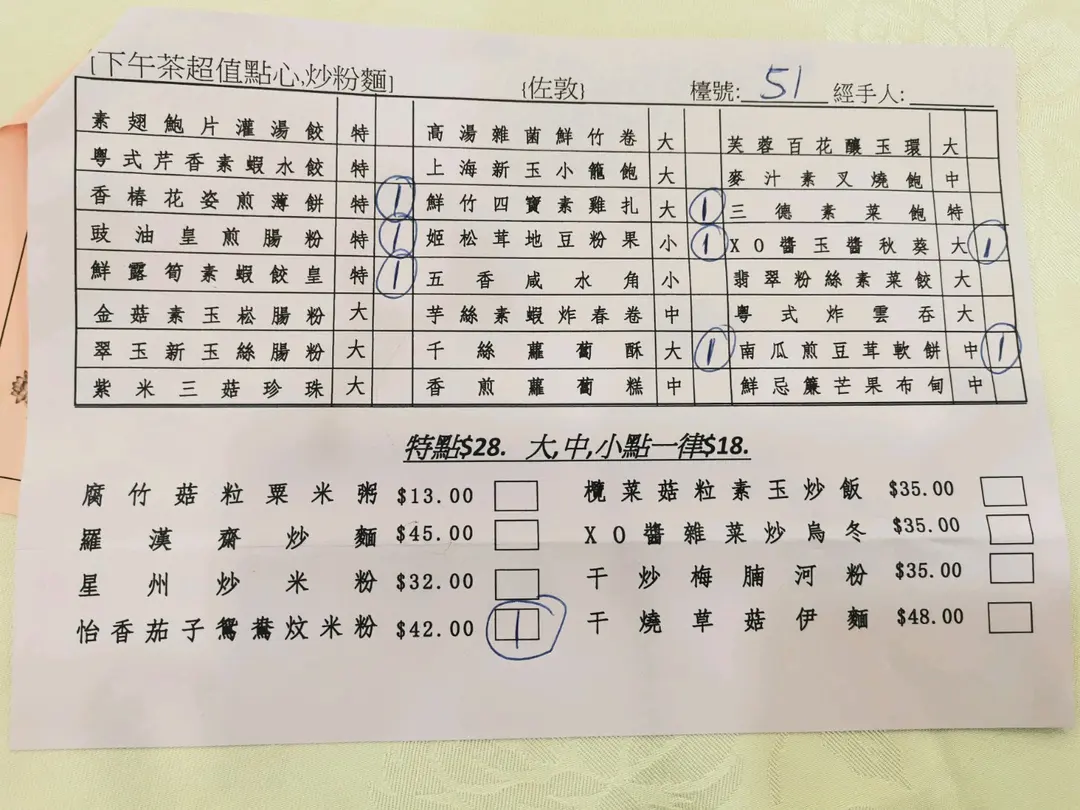 [下午茶超值點心,炒粉麵] {佐敦} 檯號: 51 經手人:
素翅鮑片灌湯餃 特 高湯雜菌鮮竹卷 大 芙蓉百花釀玉環 大
粵式芹香素蝦水餃 特 上海新玉小籠飽 大 麥汁素叉燒飽 中
香椿花姿煎薄餅 特 1 鮮竹四寶素雞扎 大 1 三德素菜飽 特
豉油皇煎腸粉 特 1 姬松茸地豆粉果 小 1 XO醬玉醬秋葵 大 1
鮮露筍素蝦餃皇 特 1 五香咸水角 小 翡翠粉絲素菜餃 大
金菇素玉崧腸粉 大 芋絲素蝦炸春卷 中 粵式炸雲吞 大
翠玉新玉絲腸粉 大 千絲蘿蔔酥 大 1 南瓜煎豆茸軟餅 中 1
紫米三菇珍珠 大 香煎蘿蔔糕 中 鮮忌簾芒果布甸 中
特點$28. 大,中,小點一律$18.
腐竹菇粒粟米粥 $13.00 欖菜菇粒素玉炒飯 $35.00
羅漢齋炒麵 $45.00 XO醬雜菜炒烏冬 $35.00
星州炒米粉 $32.00 干炒梅腩河粉 $35.00
怡香茄子鴛鴦炆米粉 $42.00 1 干燒草菇伊麵 $48.00